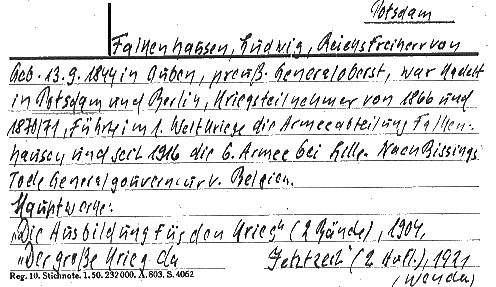 Potsdam
Falkenhausen, Ludwig, Reichsfreiherr von
Geb. 13.9.1844 in Guben, preuß. Generaloberst, war Kadett
in Potsdam und Berlin, Kriegsteilnehmer von 1866 und
1870/71, Führte im 1. Weltkriege die Armeeabteilung Falken-
hausen und seit 1916 die 6. Armee bei Lille. Nach Bissings
Tode Generalgouverneur v. Belgien.
Hauptwerke:
„Die Ausbildung für den Krieg" (2 Bände), 1904,
„Der große Krieg da Jetztzeit" (2 Aufl.), 1921
(wenda)
Reg. 10. Stichnote. 1. 50. 232 000. A. 803. S. 4062